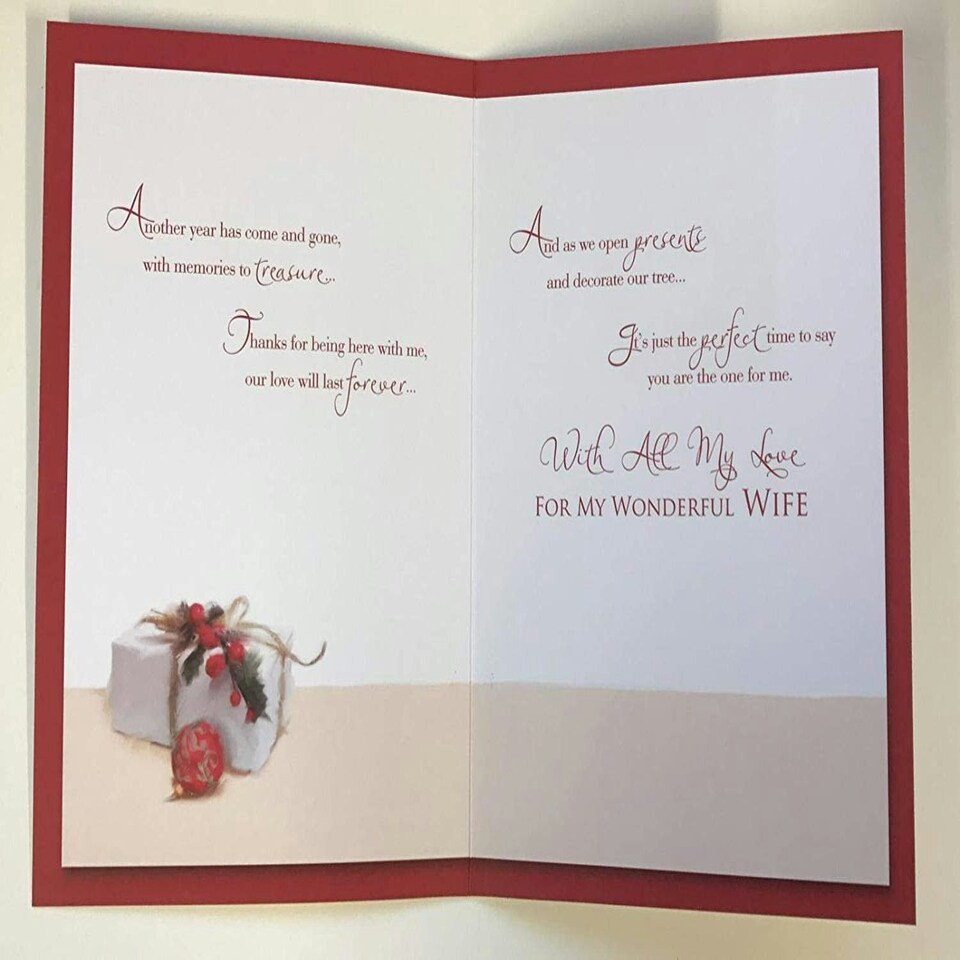 Another year has come and gone,
with memories to treasure...
Thanks for being here with me,
our love will last forever...
And as we open presents
and decorate our tree...
It's just the perfect time to say
you are the one for me.
With All My Love
FOR MY WONDERFUL WIFE